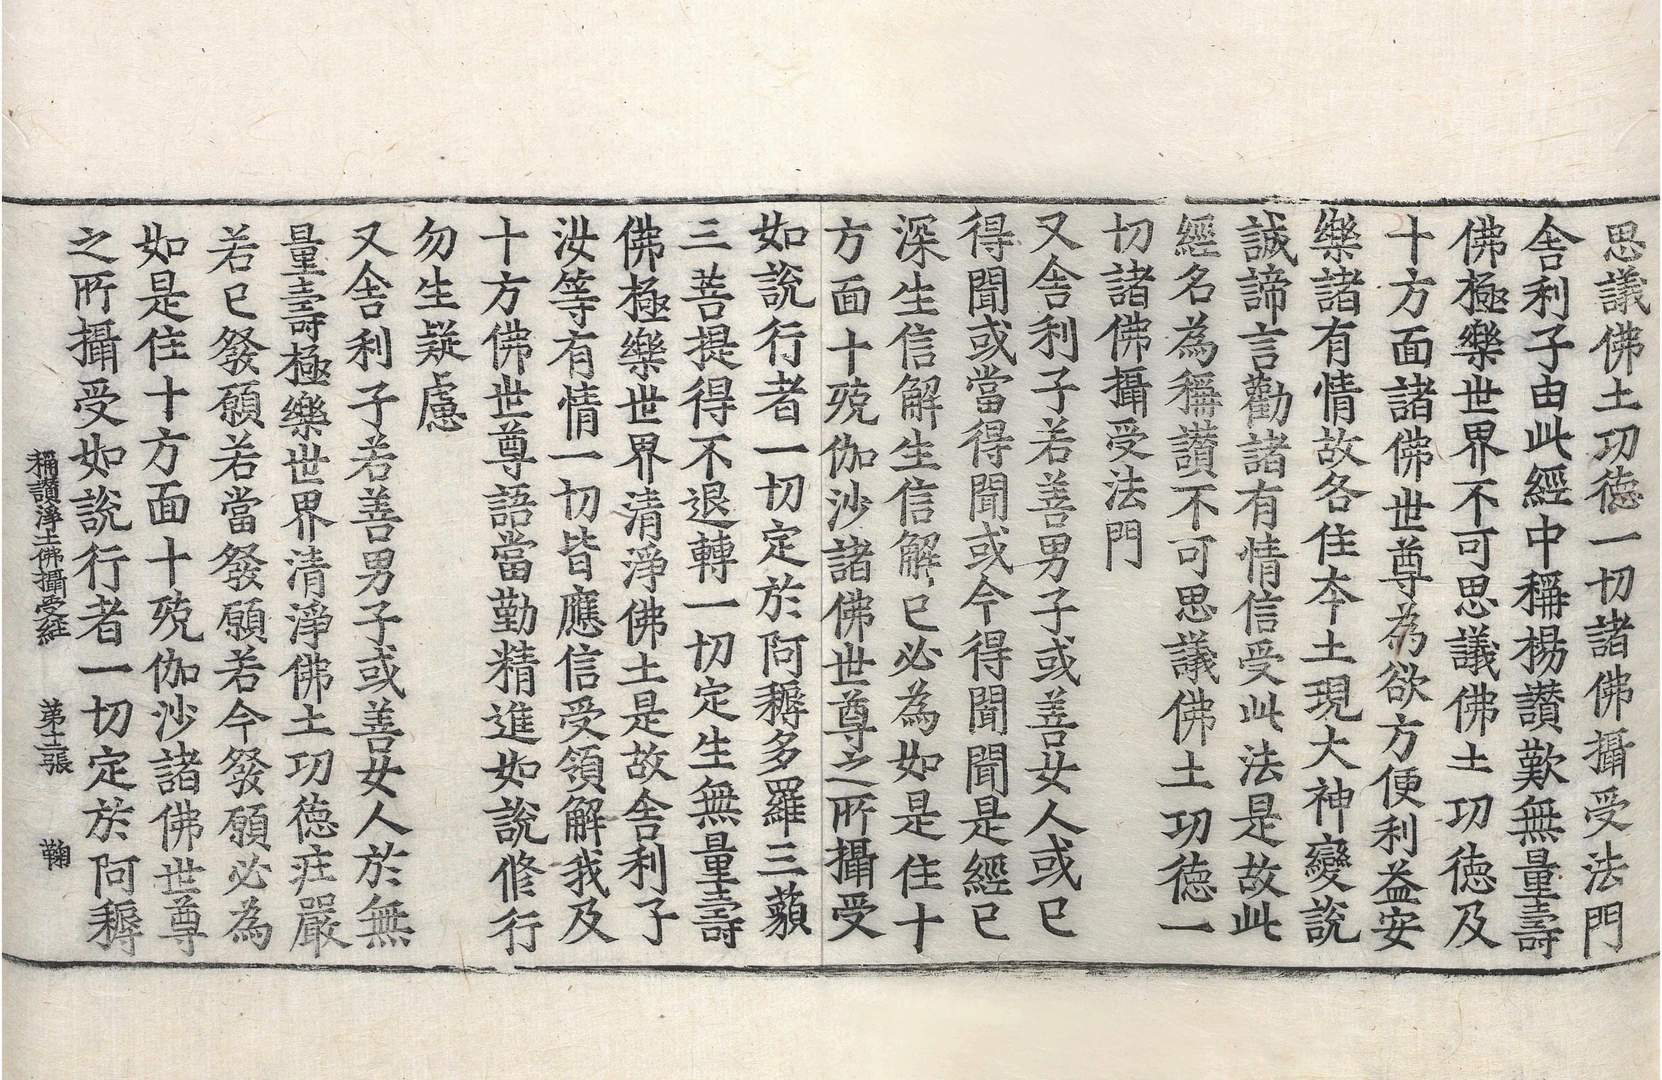 思議佛土功德一切諸佛攝受法門
舍利子由此經中稱楊讃歎無量壽
佛極樂世界不可思議佛土功德及
十方面諸佛世尊為欲方便利益安
樂諸有情故各住夲土現大神變說
誠諦言勸諸有情信受此法是故此
經名為稱讃不可思議佛土功德一
切諸佛攝受法門
又舍利子若善男子或善女人或已
得聞或當得聞或今得聞聞是經已
深生信解生信解已必為如是住十
方面十殑伽沙諸佛世尊之所攝受
如說行者一切定於阿耨多羅三藐
三菩提得不退轉一切定生無量壽
佛極樂世界清淨佛土是故舍利子
汝等有情一切皆應信受領解我及
十方佛世尊語當勤精進如說修行
勿生疑慮
又舍利子若善男子或善女人於無
量壽極樂世界清淨佛土功德莊嚴
若已發願若當發願若今發願必為
如是住十方面十殑伽沙諸佛世尊
之所攝受如說行者一切定於阿耨
稱讃淨土佛攝受經 第十二張 鞠